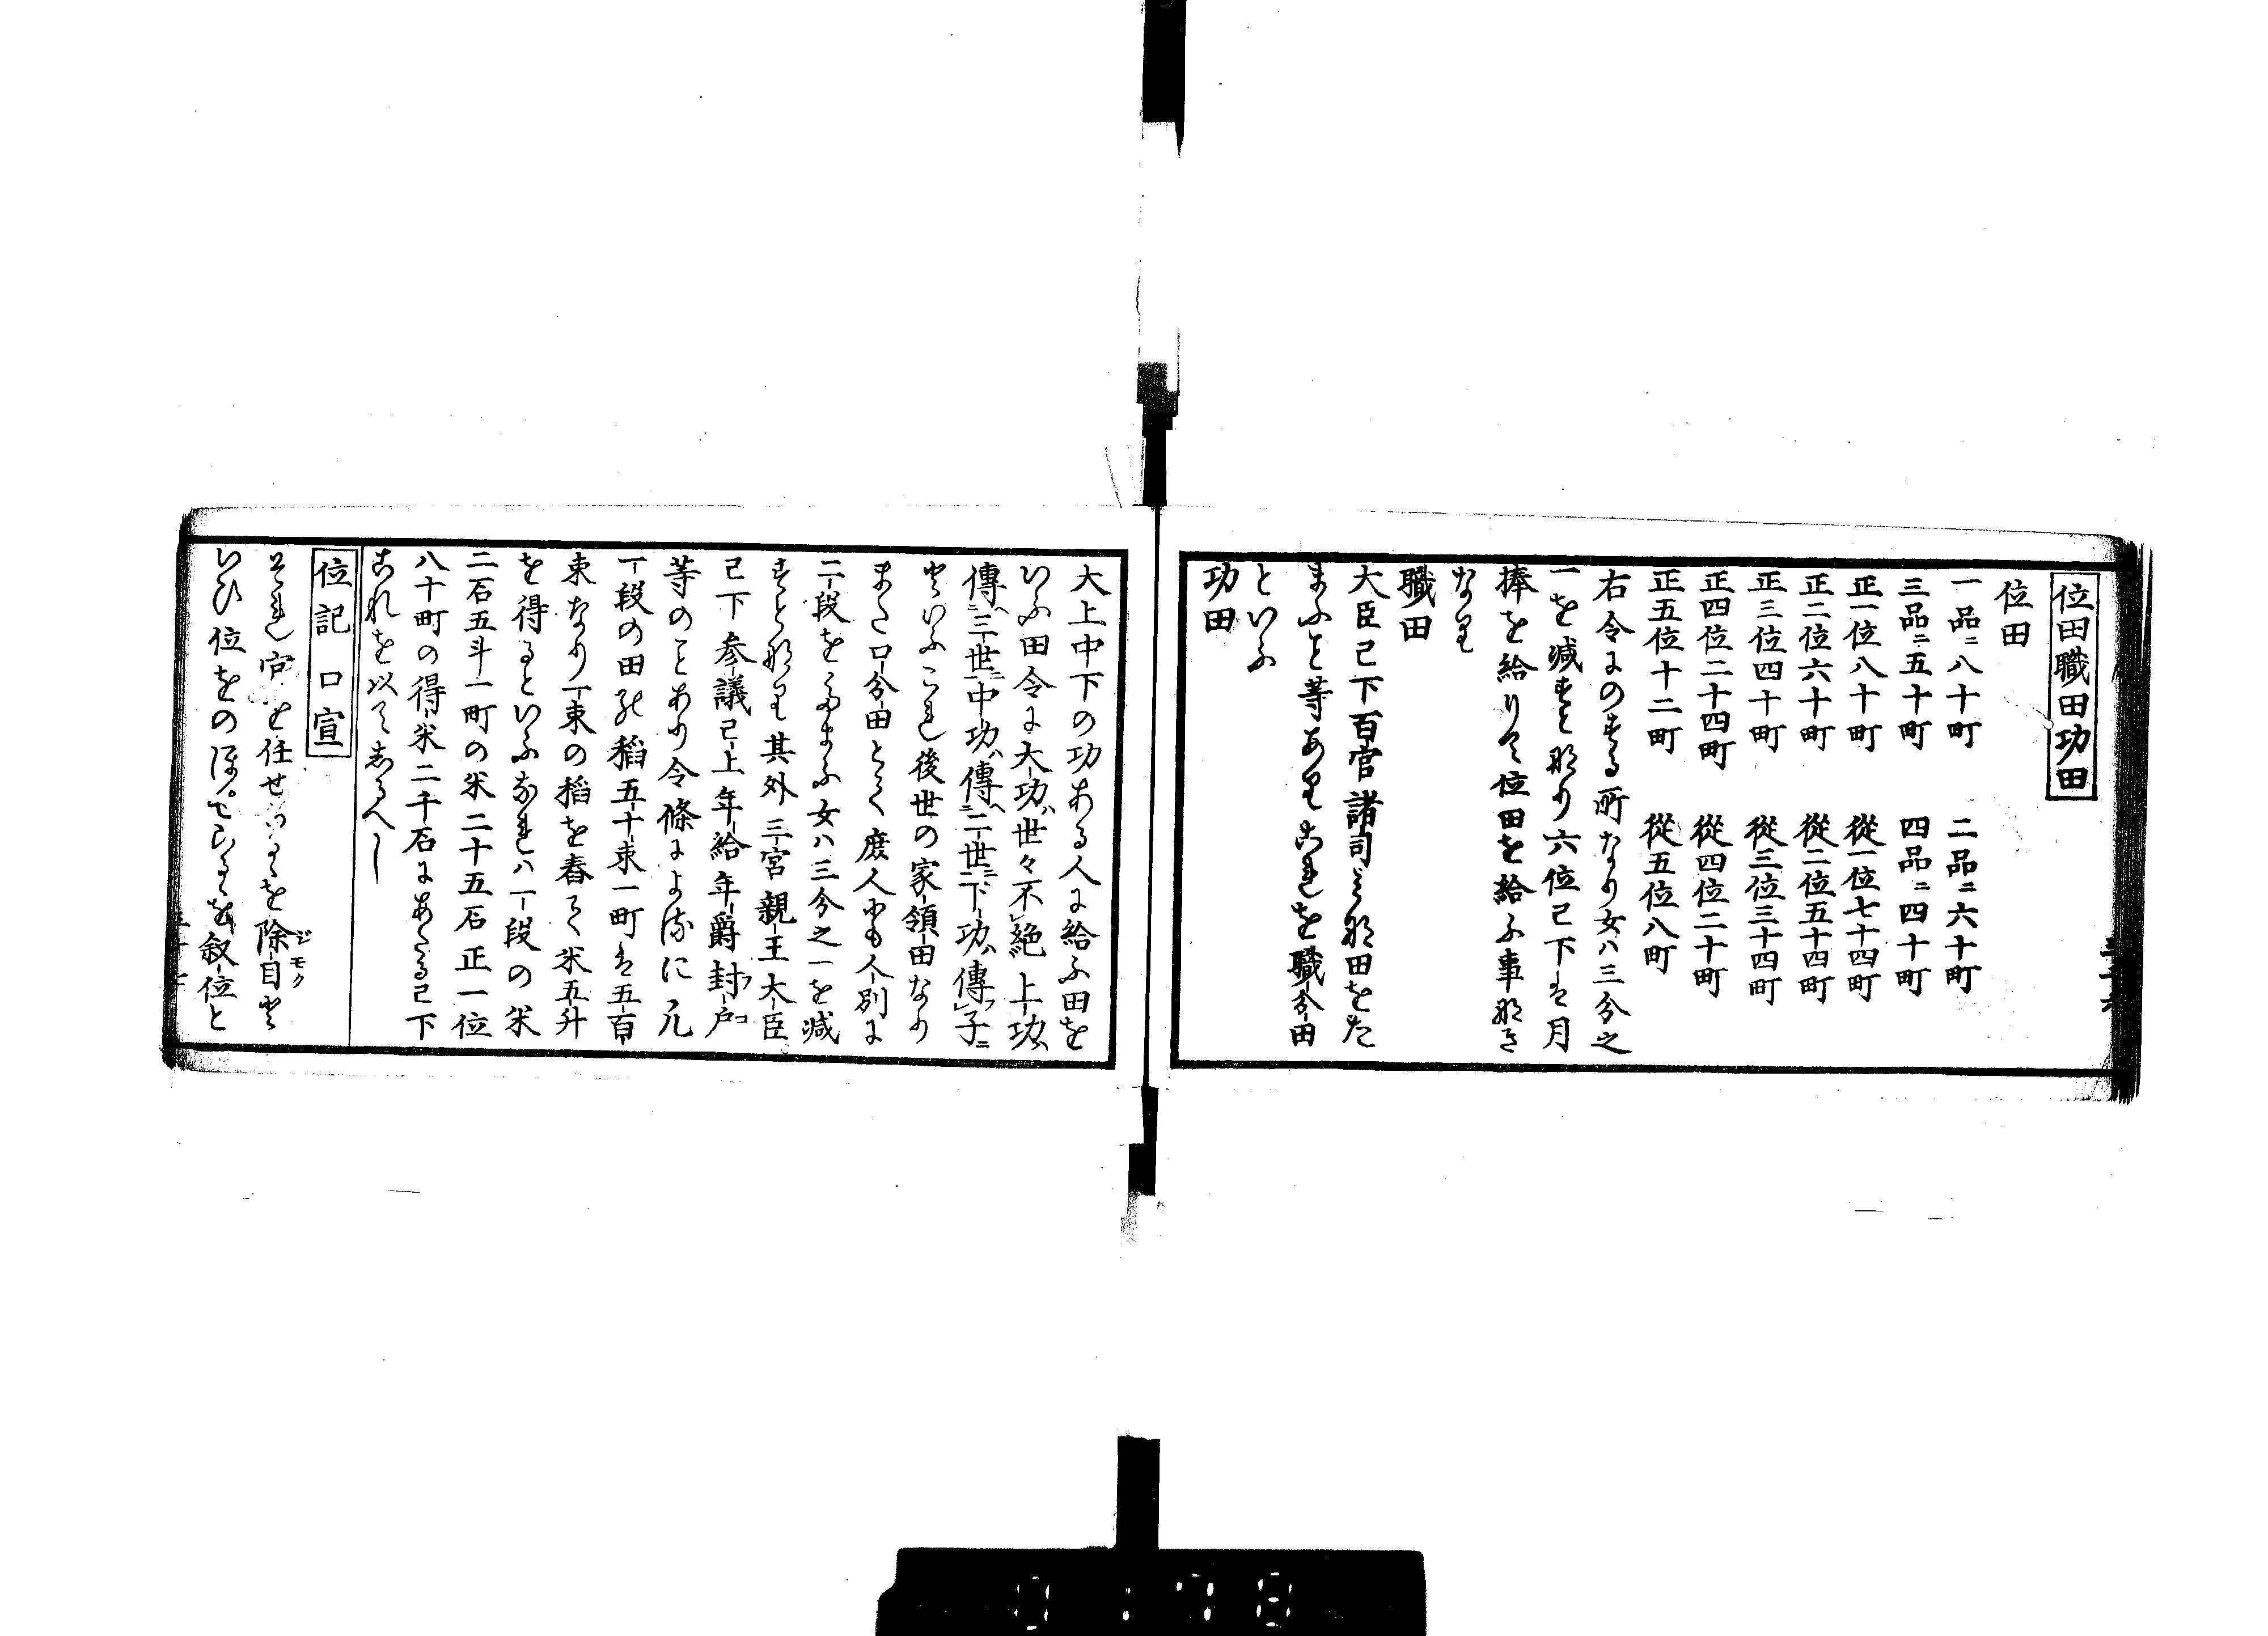 位田職田功田
位田
一品ニ八十町 二品ニ六十町
三品ニ五十町 四品ニ四十町
正一位八十町 從一位七十四町
正二位六十町 從二位五十四町
正三位四十町 從三位三十四町
正四位二十四町 從四位二十町
正五位十二町 從五位八町
右令にのする所なり女ハ三分之
一を減すと那り六位已下は月
捧を給りて位田を給ふ事那き
なり
職田
大臣已下百官諸司に那田をた
まふこと等ありこれを職分田
といふ
功田
大上中下の功ある人に給ふ田を
いふ田令に大功ハ世々不絶上功ハ
傳ニ三世ニ中功ハ傳ニ二世ニ下功ハ傳子ニ
といふこれ後世の家領田なり
また口分田とて庶人にも人別に
二段をたまふ女ハ三分之一を減
すと那り其外三宮親王大臣
已下参議已上年給年爵封戸
等のことあり令條によるに凡
一段の田の稻五十束一町は五百
束なり一束の稻を舂て米五升
を得るといふなれハ一段の米
二石五斗一町の米二十五石正一位
八十町の得米二千石にあたる已下
これを以てしるへし
位記口宣
それ官を任せらるゝを除目と
いひ位をのほせらるゝを叙位と
ジモク
0178